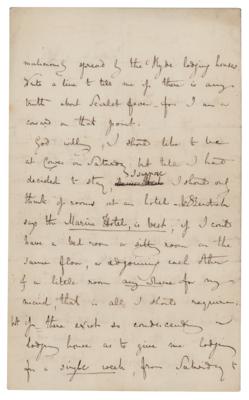 maliciously spread by the Ryde lodging houses
Write a line to tell me if there is any
truth about Scarlet fever. for I am a
coward on that point.
God willing, I should like to be
at Cowes on Saturday, but till I had
decided to stay, I should only
think of rooms at an hotel
says the Marine Hotel, is best, if I could
have a bed room & sitting room on the
same floor, or adjoining each other
& a little room any where for my
maid that is all I should require.
if there exists so condescending a
lodging house as to give me lodging
for a single week, from Saturday to